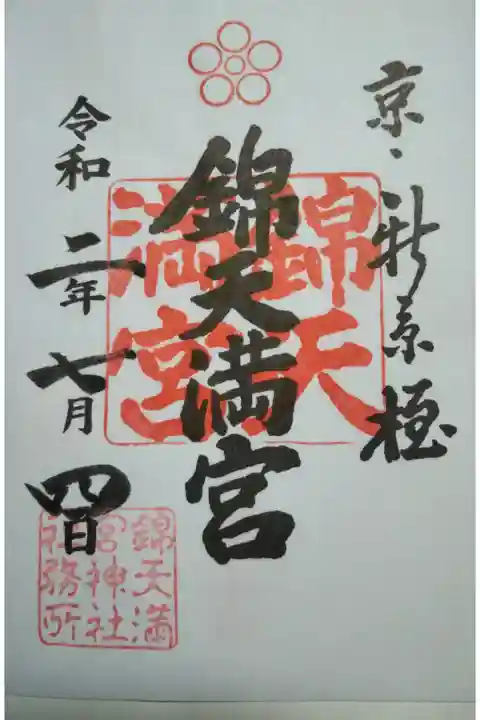 京・新京極
錦天満宮
錦天
満宮
令和二年七月四日
錦天満
宮神社
社務所